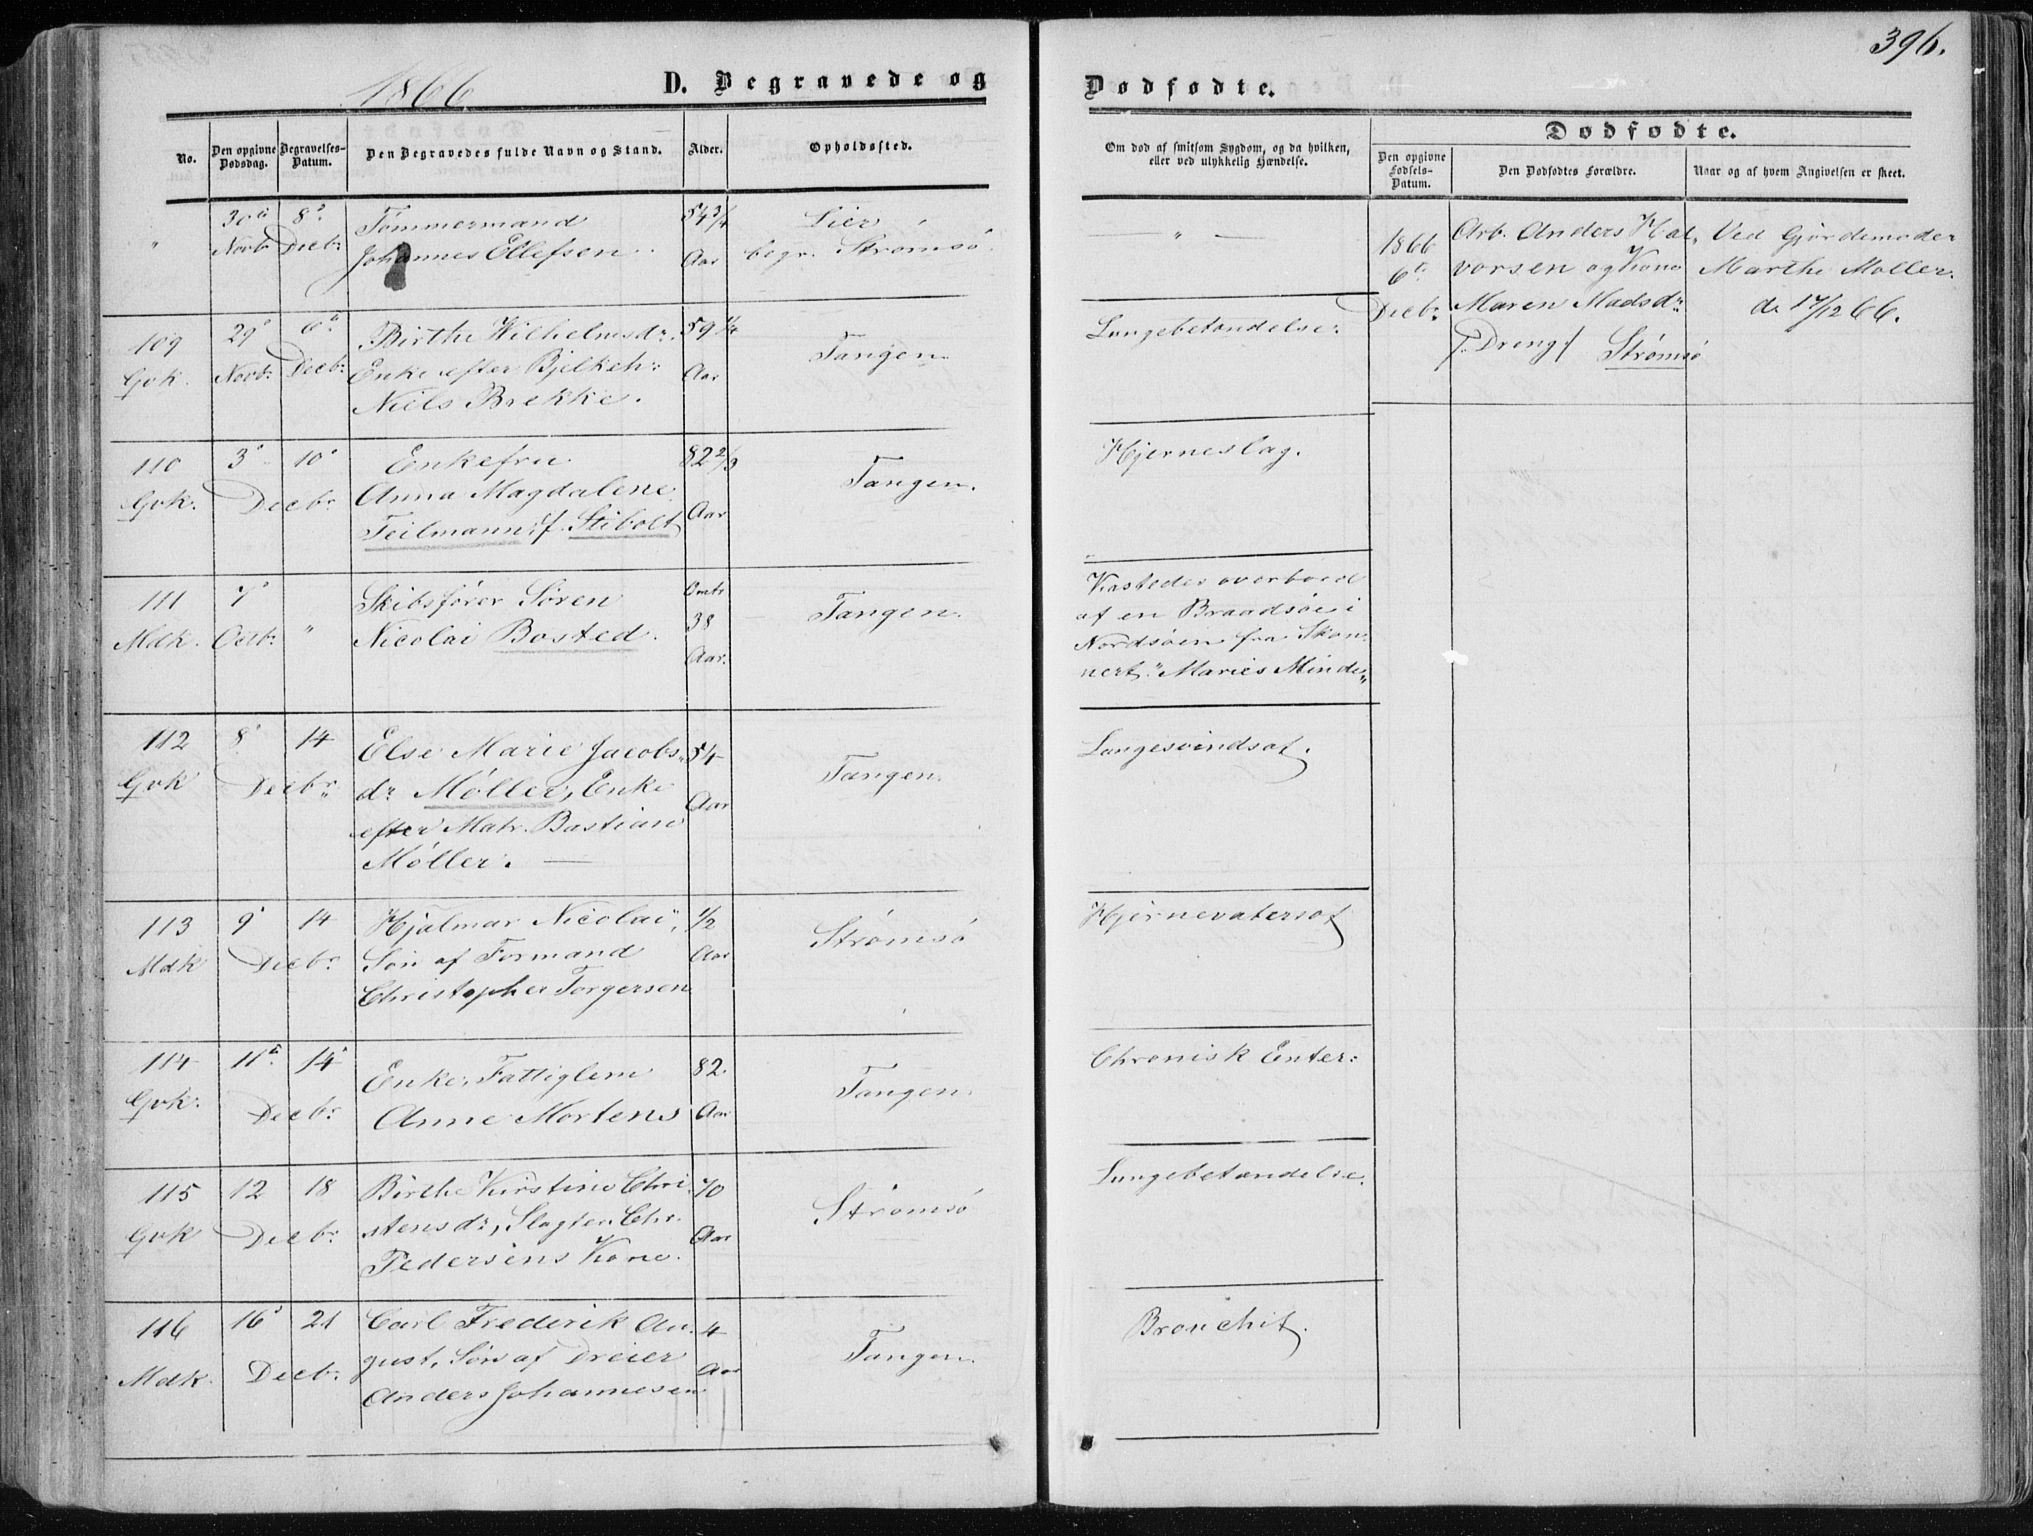 396.
1866
D. Begravede og
Dødfødte.
No.
Den opgivne Dødsdag.
Begravelses-Datum.
Den Begravedes fulde Navn og Stand.
Alder.
Opholdssted.
Om død af smitsom Sygdom, og da hvilken, eller ved ulykkelig Hændelse.
Dødfødte.
Den opgivne Fødsels-Datum.
Den Dødfødtes Forældre.
Naar og af hvem Angivelsen er skeet.
"
30te Novbr
8de Decbr
Tømmermand
Johannes Ellefsen.
54 3/4 Aar
Lier
begr. Strømsø
— " —
1866
6te
Decbr
Arb. Anders Hal-
vorsen og Kone
Maren Madsdr
/: Dreng /
Strømsø
Ved Gjordemoder
Marthe Møller.
d. 17/12 66.
109
Gvk.
29de Novbr.
6te Decbr.
Birthe Wilhelmsdr.
Enke efter Bjelkeh:
Niels Brekke.
59 1/4
Aar
Tangen
Lungebetændelse.
110
Gvk.
3de 10de
Decbr.
Enkefru
Anna Magdalene
Teilmann, f. Stibolt
82 2/3
Aar
Tangen.
Hjerneslag.
111
Mdk.
7de
Octbr.
"
Skibsfører Søren
Nicolai Bosted.
Omtr
38
Aar.
Tangen.
Kastedes overbord
af en Braadsøe i
Nordsøen fra Skon-
nert "Maries Minde"
112
Gvk
8de 14
Decbr.
Else Marie Jacobs-
dr. Møller, Enke
efter Matr. Bastian
Møller. —
54
Aar
Tangen.
Lungesvindsot.
113
Mdk
9de 14
Decbr.
Hjalmar Nicolai,
Søn af Formand
Christopher Torgersen
1/2
Aar
Strømsø
Hjernevatersot
114
Gvk.
11te 14de
Decbr.
Enke, Fattiglem
Anne Mortens
82.
Aar
Tangen.
Chronisk Enter:
115
Gvk
12 18
Decbr.
Birthe Kirstine Chri-
stensdr, Slagter Chr.
Pedersens Kone.
70
Aar
Strømsø
Lungebetændelse.
116
Mdk.
16de 21
Decbr.
Carl Frederik Au-
gust, Søn af Dreier
Anders Johannesen
4
Aar
Tangen.
Bronchit.